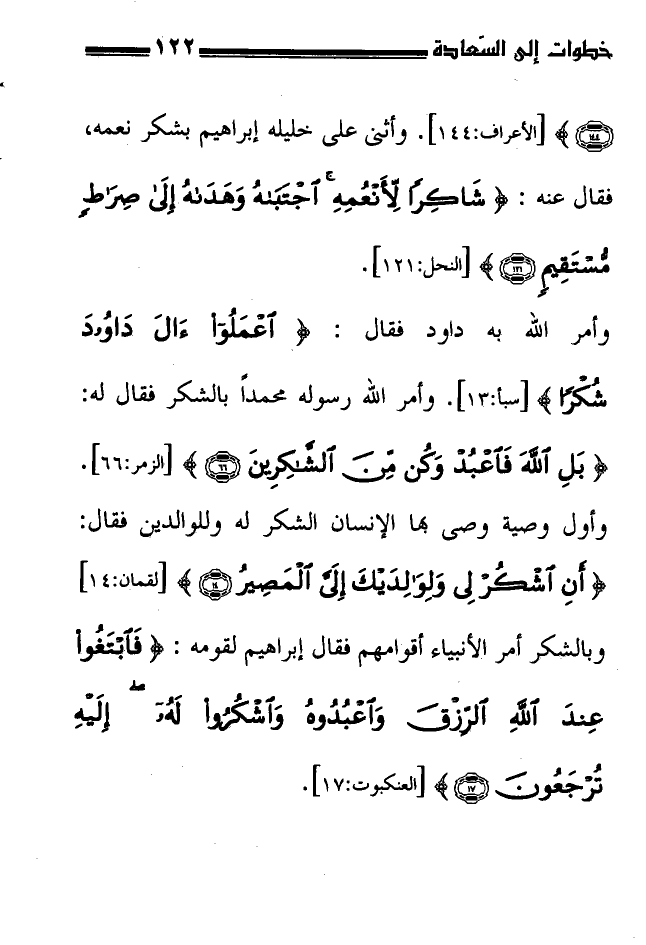 خطوات إلى السّعادة ١٢٢
﴿١٤٤﴾ [الأعراف:١٤٤]. وأثنى على خليله إبراهيم بشكر نعمه،
فقال عنه : ﴿ شَاكِرًا لِّأَنْعُمِهِ ۚ ٱجْتَبَىٰهُ وَهَدَىٰهُ إِلَىٰ صِرَٰطٍ
مُّسْتَقِيمٍ ١٢١ ﴾ [النحل:١٢١].
وأمر الله به داود فقال : ﴿ ٱعْمَلُوٓا۟ ءَالَ دَاوُۥدَ
شُكْرًا ﴾ [سبأ:١٣]. وأمر الله رسوله محمداً بالشكر فقال له:
﴿ بَلِ ٱللَّهَ فَٱعْبُدْ وَكُن مِّنَ ٱلشَّٰكِرِينَ ٦٦ ﴾ [الزمر:٦٦].
وأول وصية وصى بها الإنسان الشكر له وللوالدين فقال:
﴿ أَنِ ٱشْكُرْ لِى وَلِوَٰلِدَيْكَ إِلَىَّ ٱلْمَصِيرُ ١٤ ﴾ [لقمان:١٤]
وبالشكر أمر الأنبياء أقوامهم فقال إبراهيم لقومه : ﴿ فَٱبْتَغُوا۟
عِندَ ٱللَّهِ ٱلرِّزْقَ وَٱعْبُدُوهُ وَٱشْكُرُوا۟ لَهُۥٓ ۖ إِلَيْهِ
تُرْجَعُونَ ١٧ ﴾ [العنكبوت:١٧].